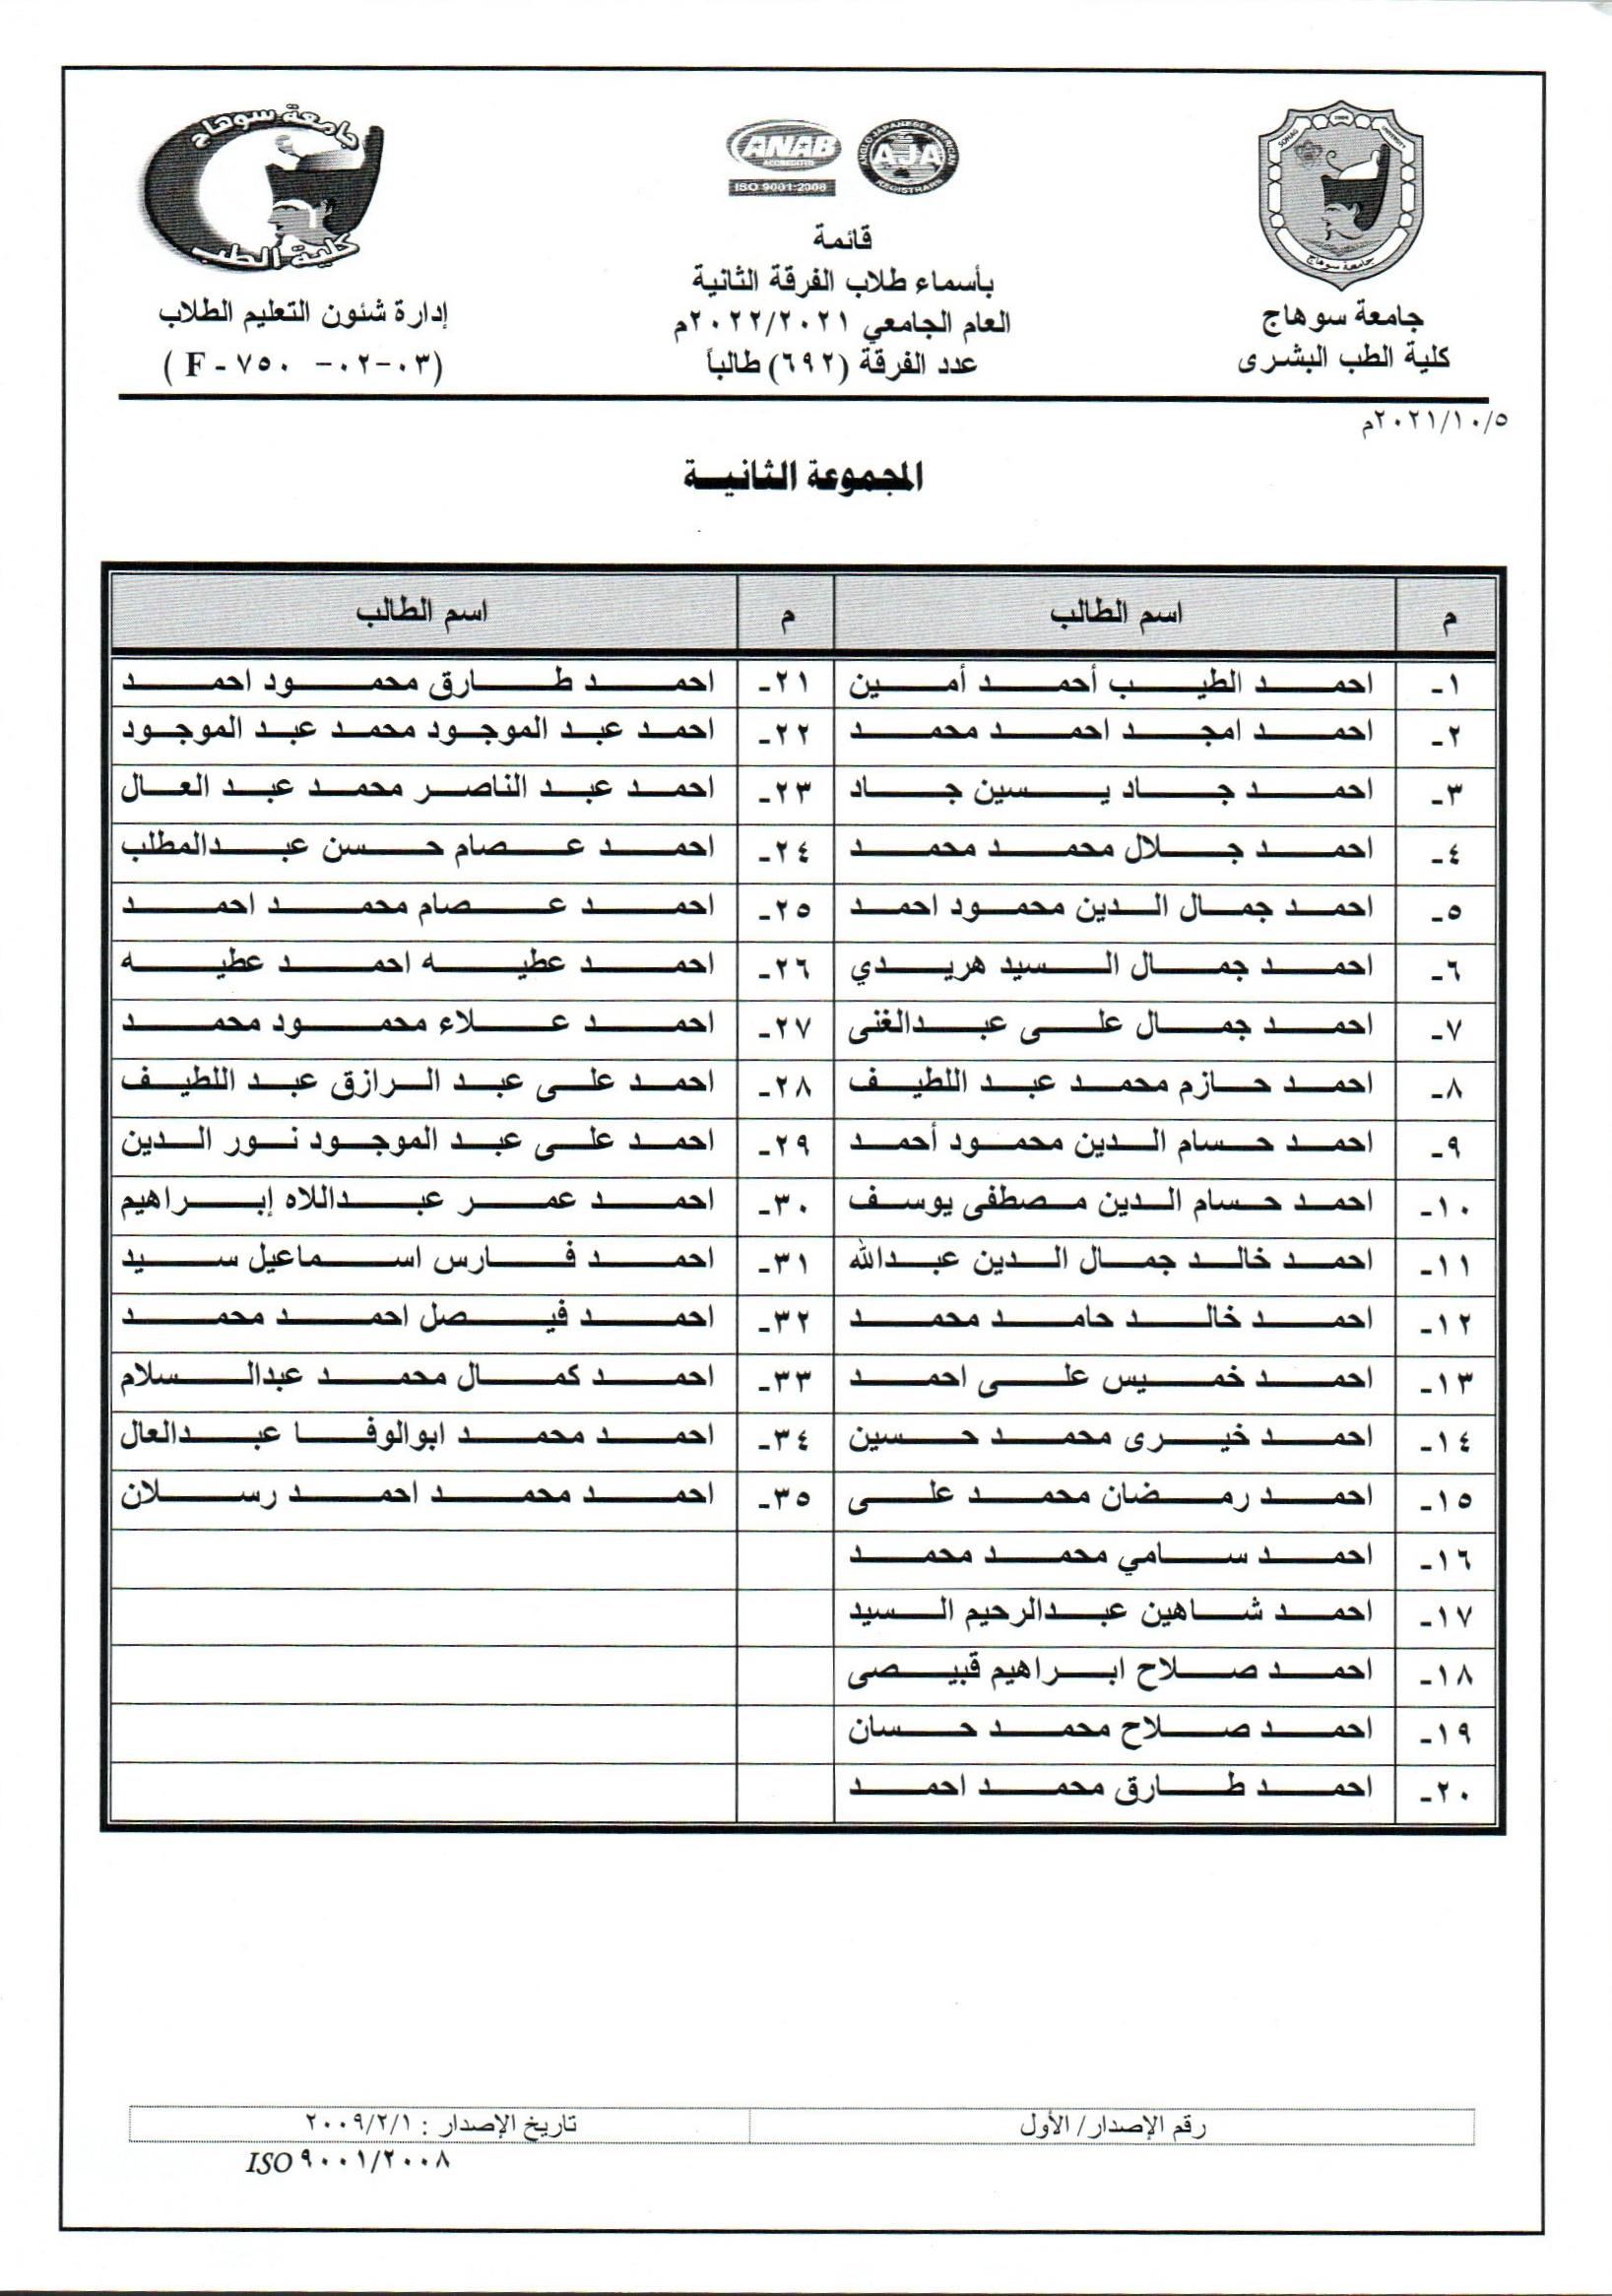 جامعة سوهاج
كلية الطب البشرى
SOHAG
UNIVERSITY
جامعة سوهاج
ANAB
ACCREDITED
ISO 9001:2008
ANGLO JAPANESE AMERICAN
AJA
REGISTRARS
قائمة
بأسماء طلاب الفرقة الثانية
العام الجامعي ٢٠٢٢/٢٠٢١م
عدد الفرقة (٦٩٢) طالباً
جامعة سوهاج
كلية الطب
إدارة شئون التعليم الطلاب
(F - ٧٥٠ -٠٢-٠٣)
٢٠٢١/١٠/٥م
المجموعة الثانية
م اسم الطالب م اسم الطالب
١- احمد الطيب أحمد أمين ٢١- احمد طارق محمود احمد
٢- احمد امجد احمد محمد ٢٢- احمد عبد الموجود محمد عبد الموجود
٣- احمد جاد يسين جاد ٢٣- احمد عبد الناصر محمد عبد العال
٤- احمد جلال محمد محمد ٢٤- احمد عصام حسن عبدالمطلب
٥- احمد جمال الدين محمود احمد ٢٥- احمد عصام محمد احمد
٦- احمد جمال السيد هريدي ٢٦- احمد عطيه احمد عطيه
٧- احمد جمال على عبدالغنى ٢٧- احمد علاء محمود محمد
٨- احمد حازم محمد عبد اللطيف ٢٨- احمد على عبد الرازق عبد اللطيف
٩- احمد حسام الدين محمود أحمد ٢٩- احمد على عبد الموجود نور الدين
١٠- احمد حسام الدين مصطفى يوسف ٣٠- احمد عمر عبداللاه إبراهيم
١١- احمد خالد جمال الدين عبدالله ٣١- احمد فارس اسماعيل سيد
١٢- احمد خالد حامد محمد ٣٢- احمد فيصل احمد محمد
١٣- احمد خميس على احمد ٣٣- احمد كمال محمد عبدالسلام
١٤- احمد خيرى محمد حسين ٣٤- احمد محمد ابوالوفا عبدالعال
١٥- احمد رمضان محمد على ٣٥- احمد محمد احمد رسلان
١٦- احمد سامي محمد محمد
١٧- احمد شاهين عبدالرحيم السيد
١٨- احمد صلاح ابراهيم قبيصى
١٩- احمد صلاح محمد حسان
٢٠- احمد طارق محمد احمد
رقم الإصدار/ الأول تاريخ الإصدار : ٢٠٠٩/٢/١
ISO ٩٠٠١/٢٠٠٨